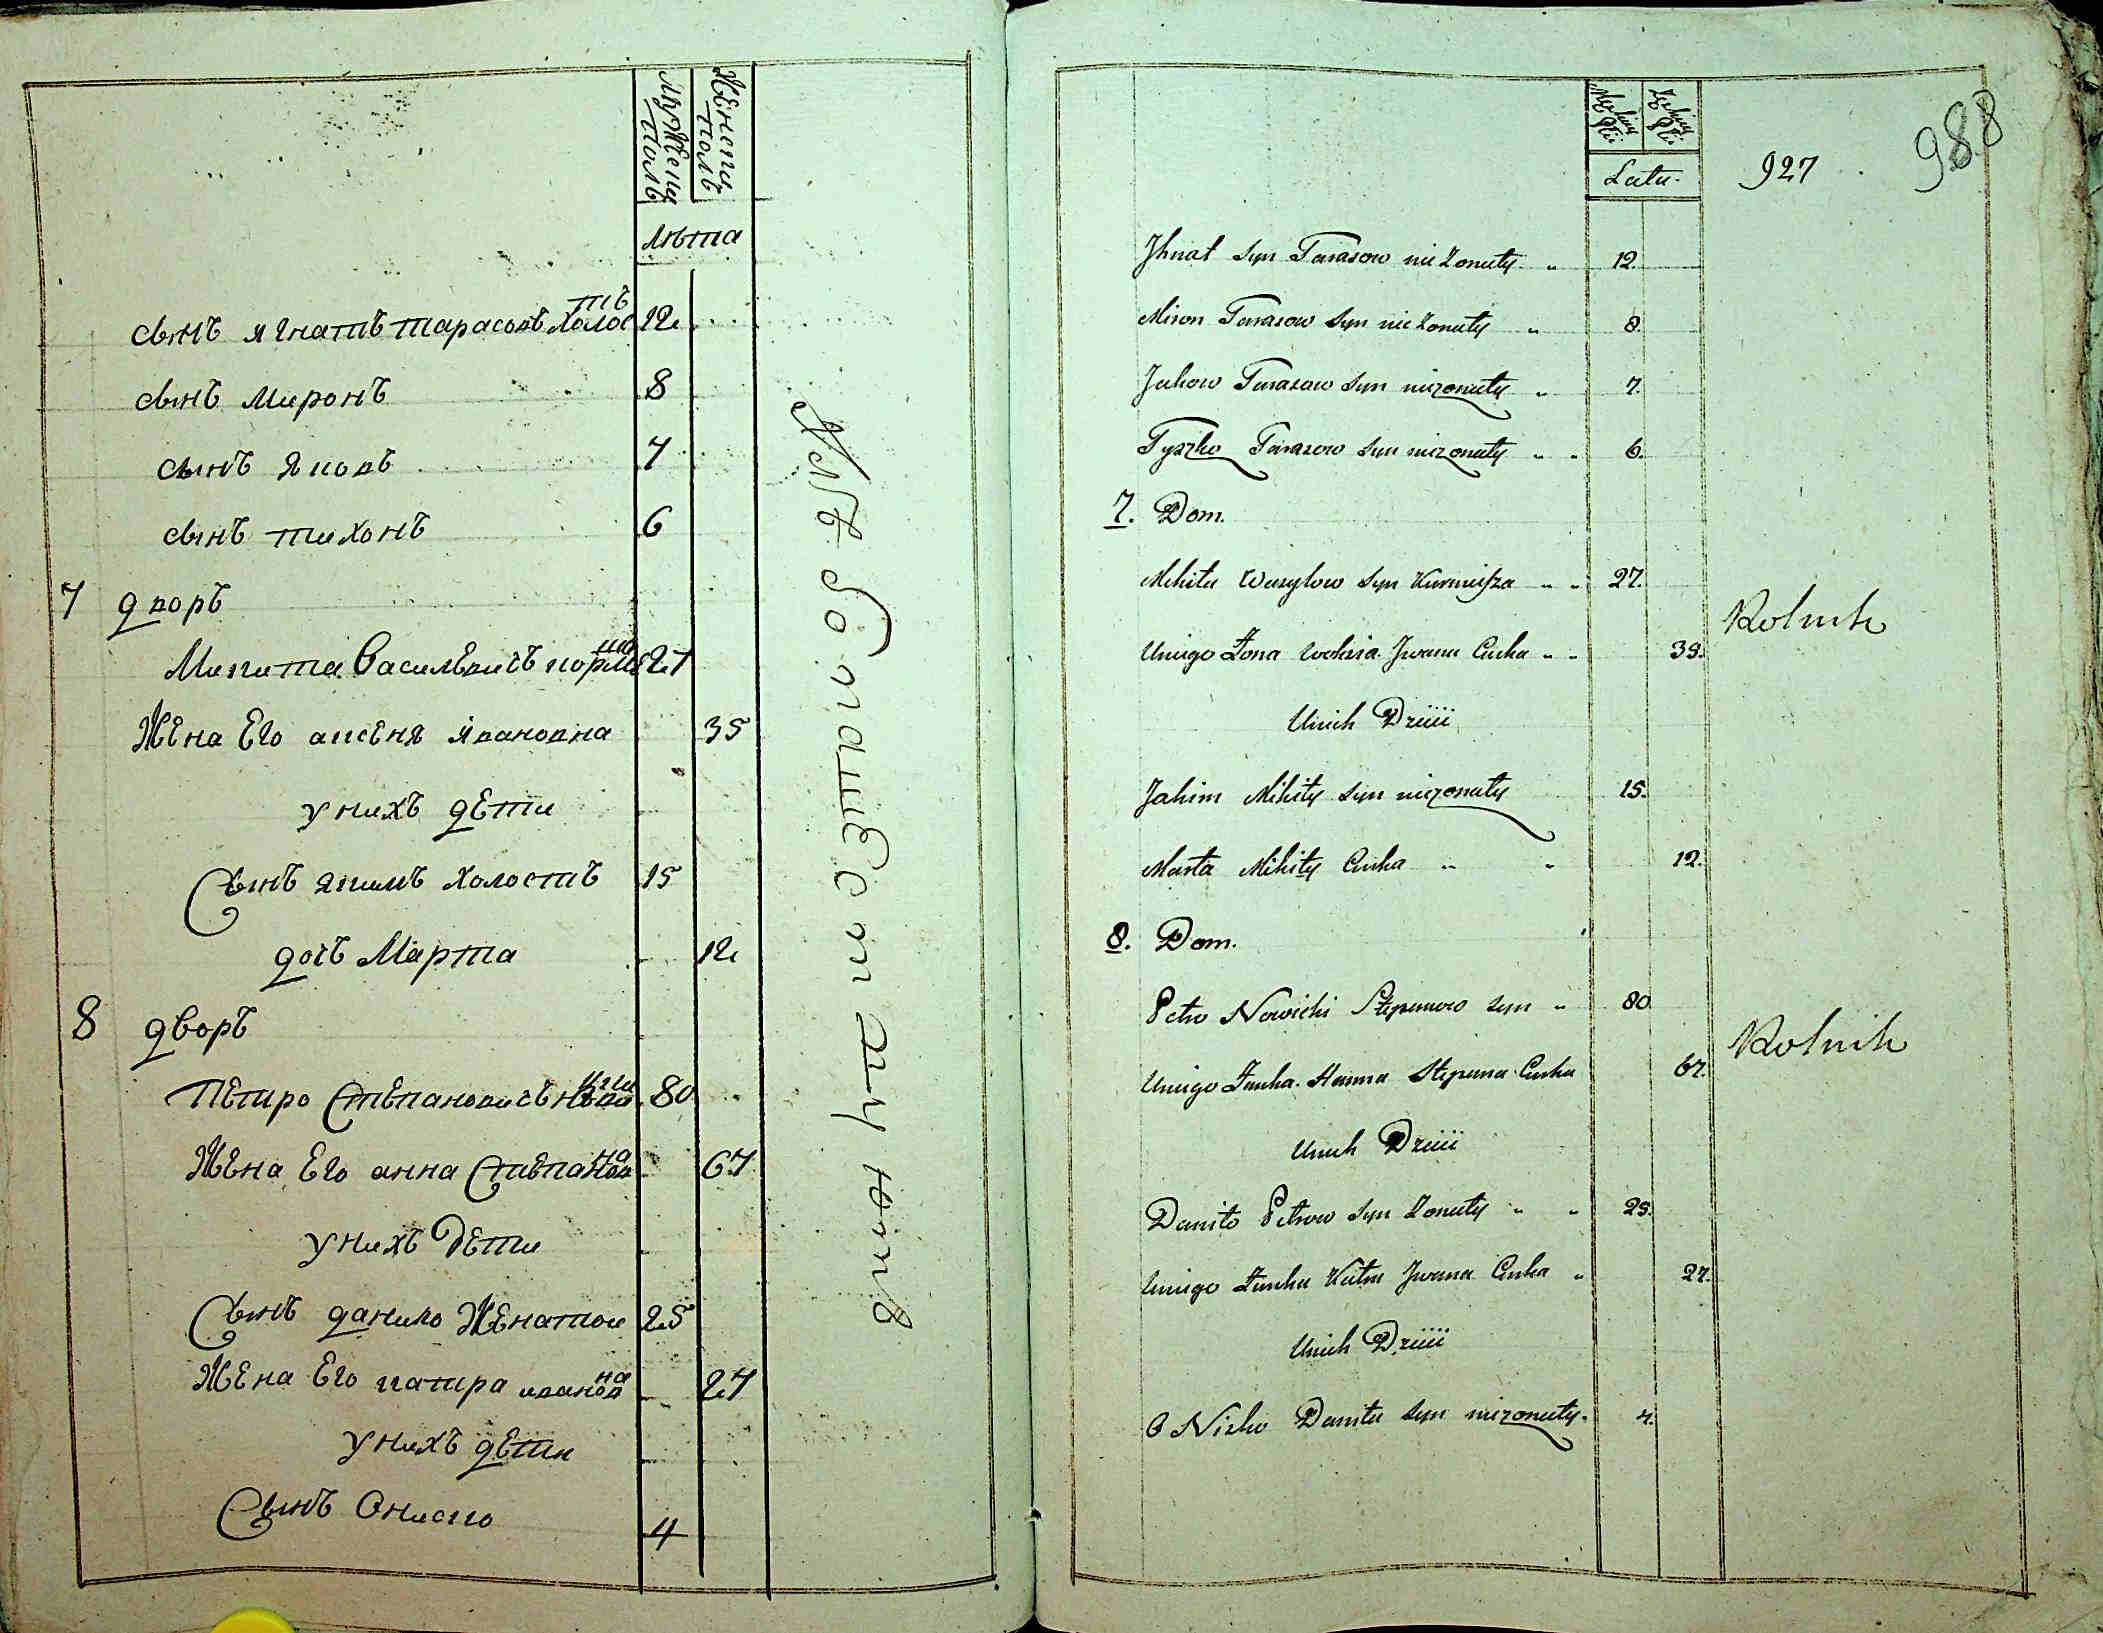 Мужеска полъ
Женска полъ
лѣта
сынъ игнатъ тарасовъ холостъ 12
сынъ миронъ 8
сынъ яковъ 7
сынъ тихонъ 6
7 дворъ
Микита Васильевичъ 27
Жена Его аксеня ивановна 35
у нихъ дети
Сынъ якимъ холостъ 15
дочъ Марта 12
8 дворъ
Петро Степановичъ 80
Жена Его анна Степановна 67
у нихъ дети
Сынъ данило женатои 25
Жена Его катра ивановна 27
у нихъ дети
Сынъ Ониско 4
Latu.
927
988
Jhnat Syn Tarasow nie Zonuty 12.
Miron Tarasow Syn nie Zonuty 8.
Jakow Tarasow Syn niezonuty 7.
Tyszko Tarasow Syn niezonuty 6.
7. Dom.
Mikita Wasylow Syn 27.
Uniego Zona Iwana Curka 35.
Rolnik
Unich Dzieii
Jakim Mikity Syn niezonuty 15.
Marta Mikity Curka 12.
8. Dom.
Petro Nowicki Stepanow Syn 80
Uniego Zunka Hanna Stepana Curka 67.
Rolnik
Unich Dzieii
Daniło Petrow Syn Zonuty 25.
Uniego Zunka Katra Iwana Curka 27.
Unich Dzieii
O Nisko Daniła Syn niezonuty. 4.